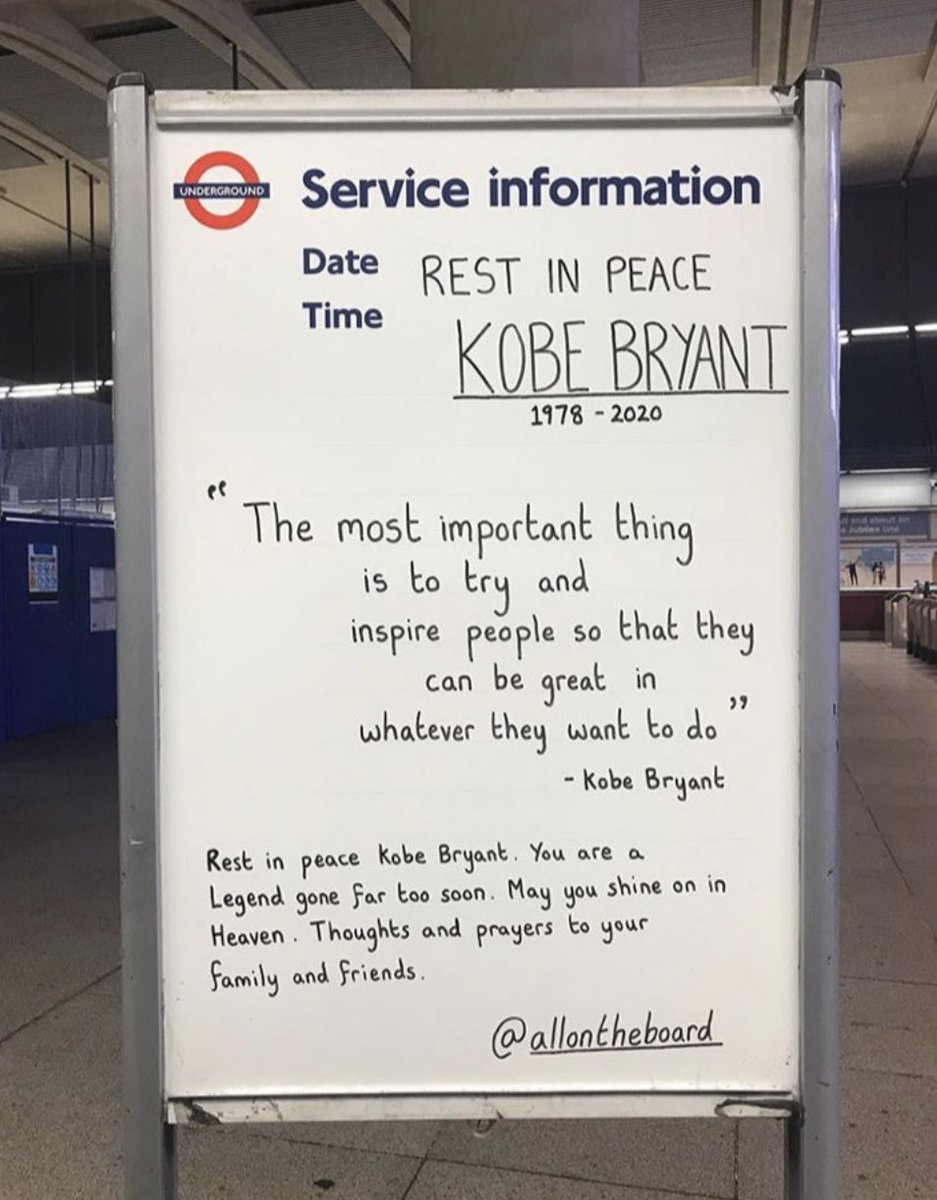 UNDERGROUND
Service information
Date
REST IN PEACE
Time
KOBE BRYANT
1978 - 2020
"The most important thing
is to try and
inspire people so that they
can be great in
whatever they want to do"
- Kobe Bryant
Rest in peace Kobe Bryant. You are a
Legend gone far too soon. May you shine on in
Heaven. Thoughts and prayers to your
family and friends.
@allontheboard
and about on
Jubilee line